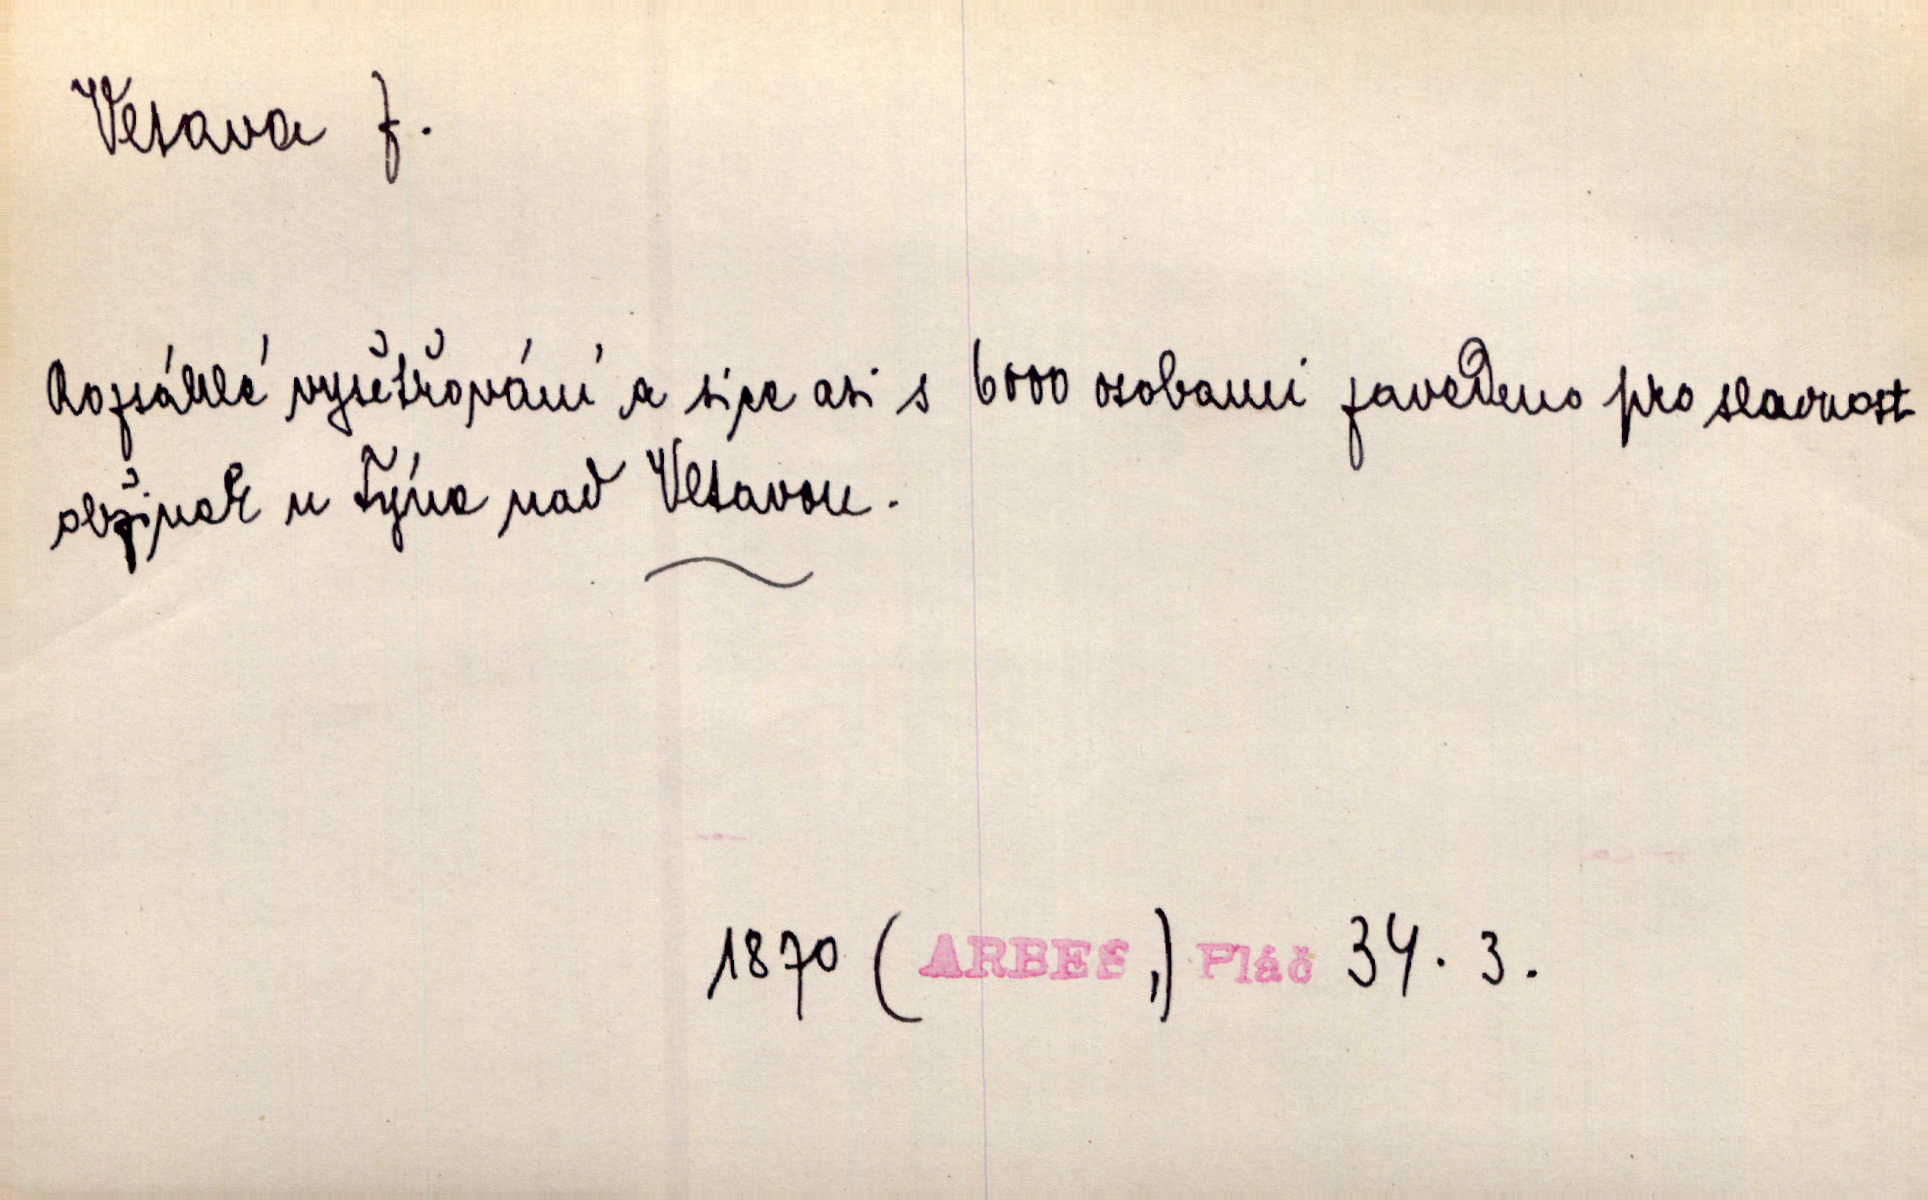 Vltava f.
Rozsáhlé vyšetřování a sice asi s 6000 osobami zavedeno pro slavnost
obžinek u Týna nad Vltavou.
1870 (ARBES,) Pláč 34. 3.